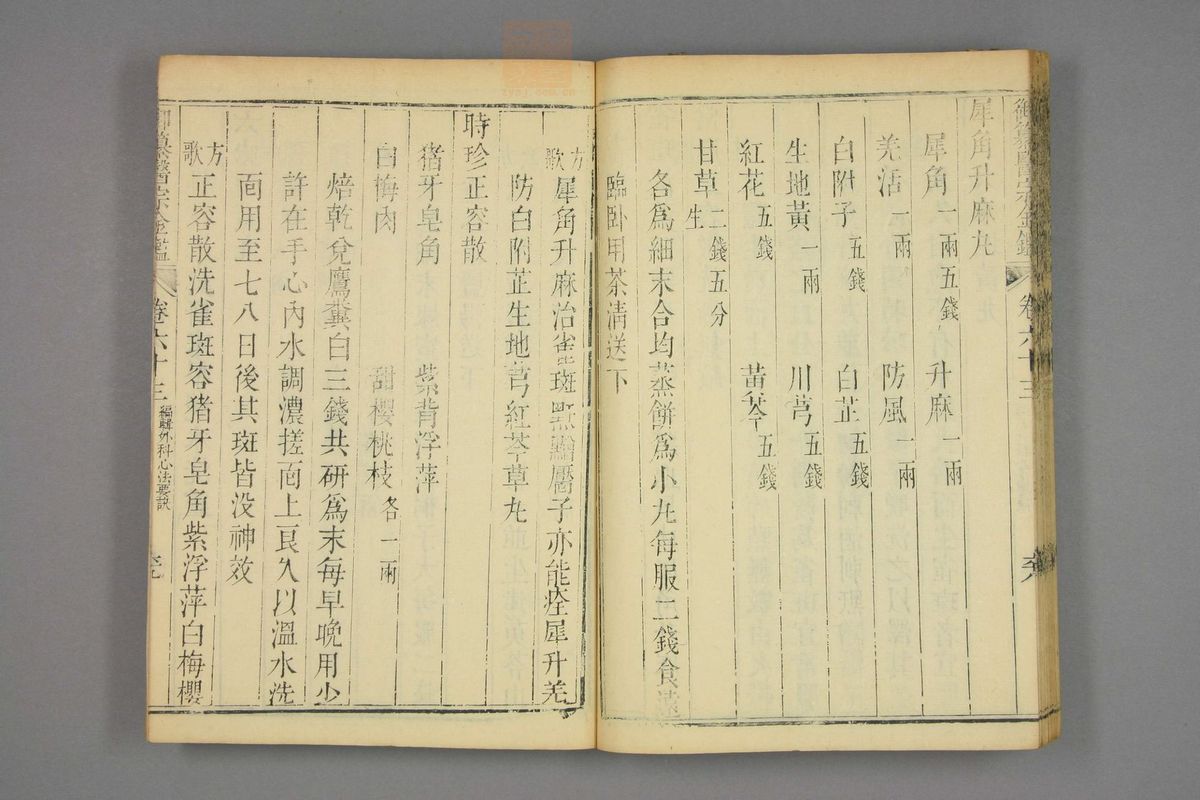 御纂醫宗金鑑 卷六十三
犀角升麻丸
犀角一兩五錢 升麻一兩
羌活一兩 防風一兩
白附子五錢 白芷五錢
生地黃一兩 川芎五錢
紅花五錢 黃芩五錢
甘草生二錢五分
各爲細末合均蒸餅爲小丸每服二錢食遠
臨卧用茶清送下
方歌 犀角升麻治雀斑黑䵳靨子亦能痊犀升羌
防白附芷生地芎紅芩草丸
時珍正容散
猪牙皂角 紫背浮萍
白梅肉 甜櫻桃枝各一兩
焙乾兌鷹糞白三錢共研爲末每早晚用少
許在手心內水調濃搓面上良久以溫水洗
面用至七八日後其斑皆没神效
方歌 正容散洗雀斑容猪牙皂角紫浮萍白梅櫻
御纂醫宗金鑑 卷六十三 編輯外科心法要訣